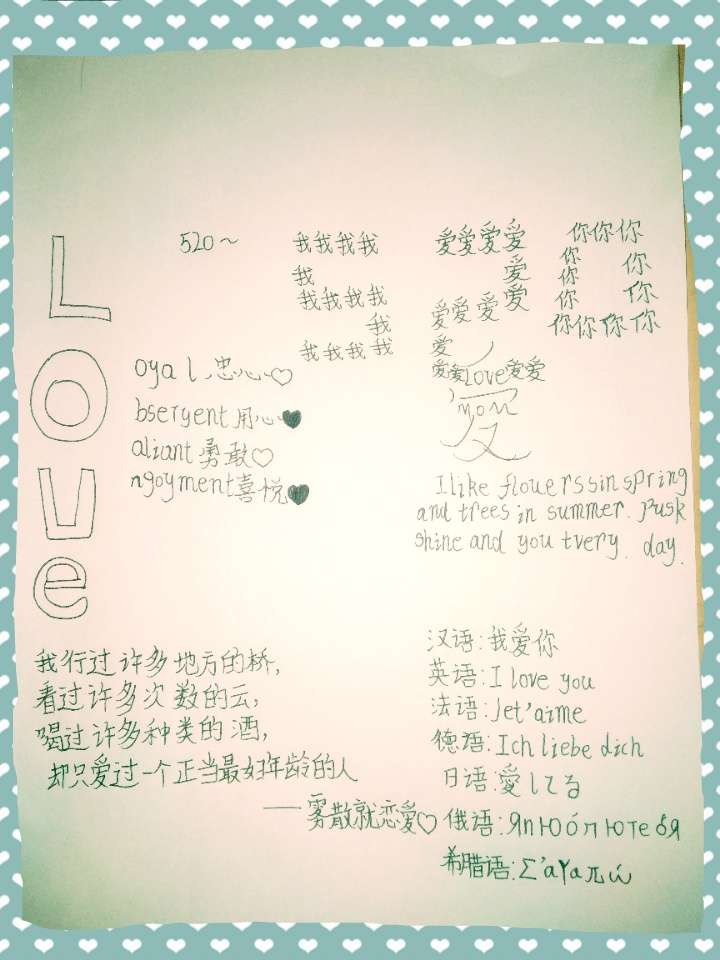 520～
我我我我
我
我我我我
我
我我我我
爱爱爱爱
爱
爱爱爱爱
爱
爱爱love爱爱
you
你你你
你
你 你
你 你
你你你你
L
oyal 忠心♡
O
bseryent 用心♥
V
aliant 勇敢♡
e
ngoyment喜悦♥
I like flowerssin spring
and trees in summer. Pusk
shine and you tvery. day.
我行过许多地方的桥,
看过许多次数的云,
喝过许多种类的酒,
却只爱过一个正当最好年龄的人
——雾散就恋爱♡
汉语:我爱你
英语:I love you
法语:Jet'aime
德语:Ich liebe dich
日语:愛してる
俄语:Япюблютебя
希腊语:Σ'αγαπώ